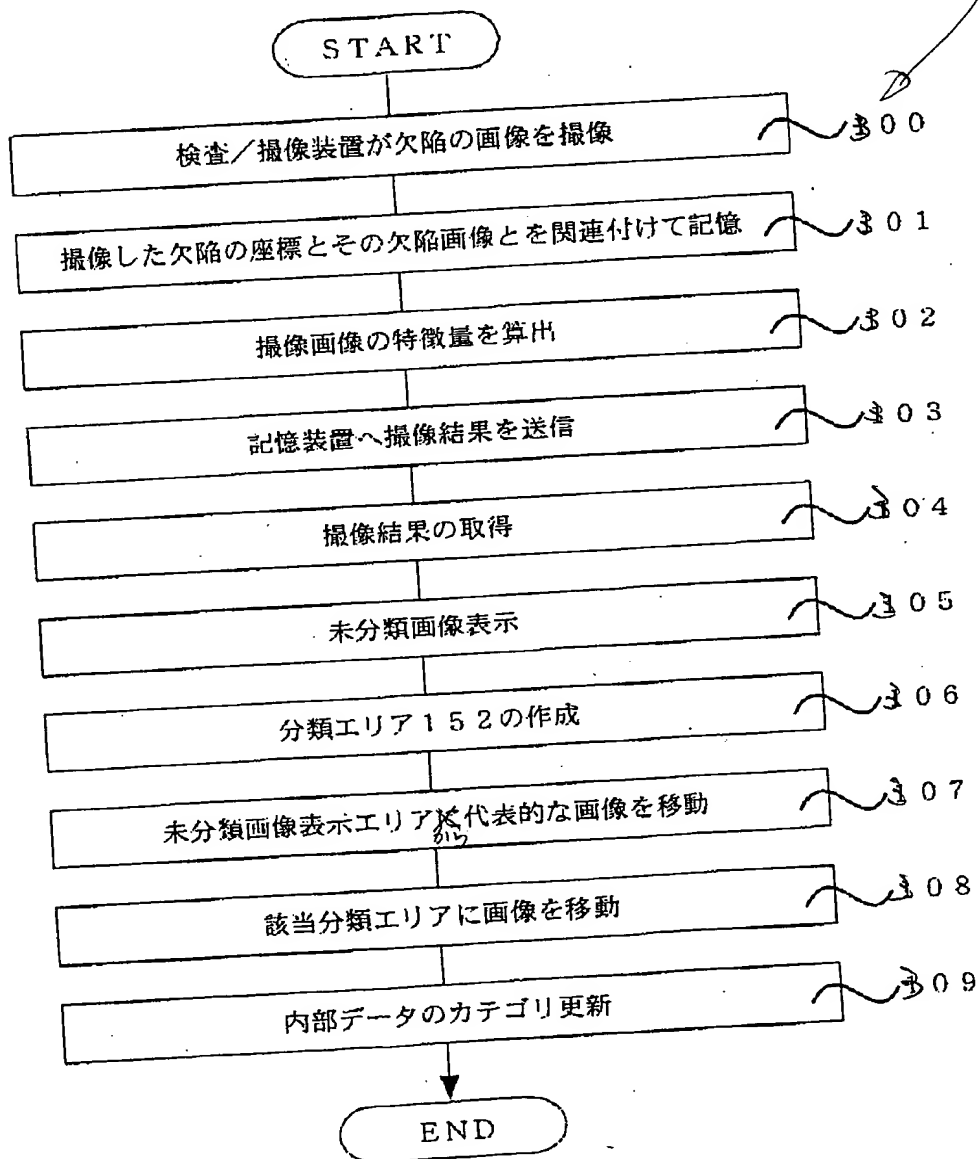 START
検査/撮像装置が欠陥の画像を撮像 300
撮像した欠陥の座標とその欠陥画像とを関連付けて記憶 301
撮像画像の特徴量を算出 302
記憶装置へ撮像結果を送信 303
撮像結果の取得 304
未分類画像表示 305
分類エリア152の作成 306
未分類画像表示エリアから代表的な画像を移動 307
該当分類エリアに画像を移動 308
内部データのカテゴリ更新 309
END